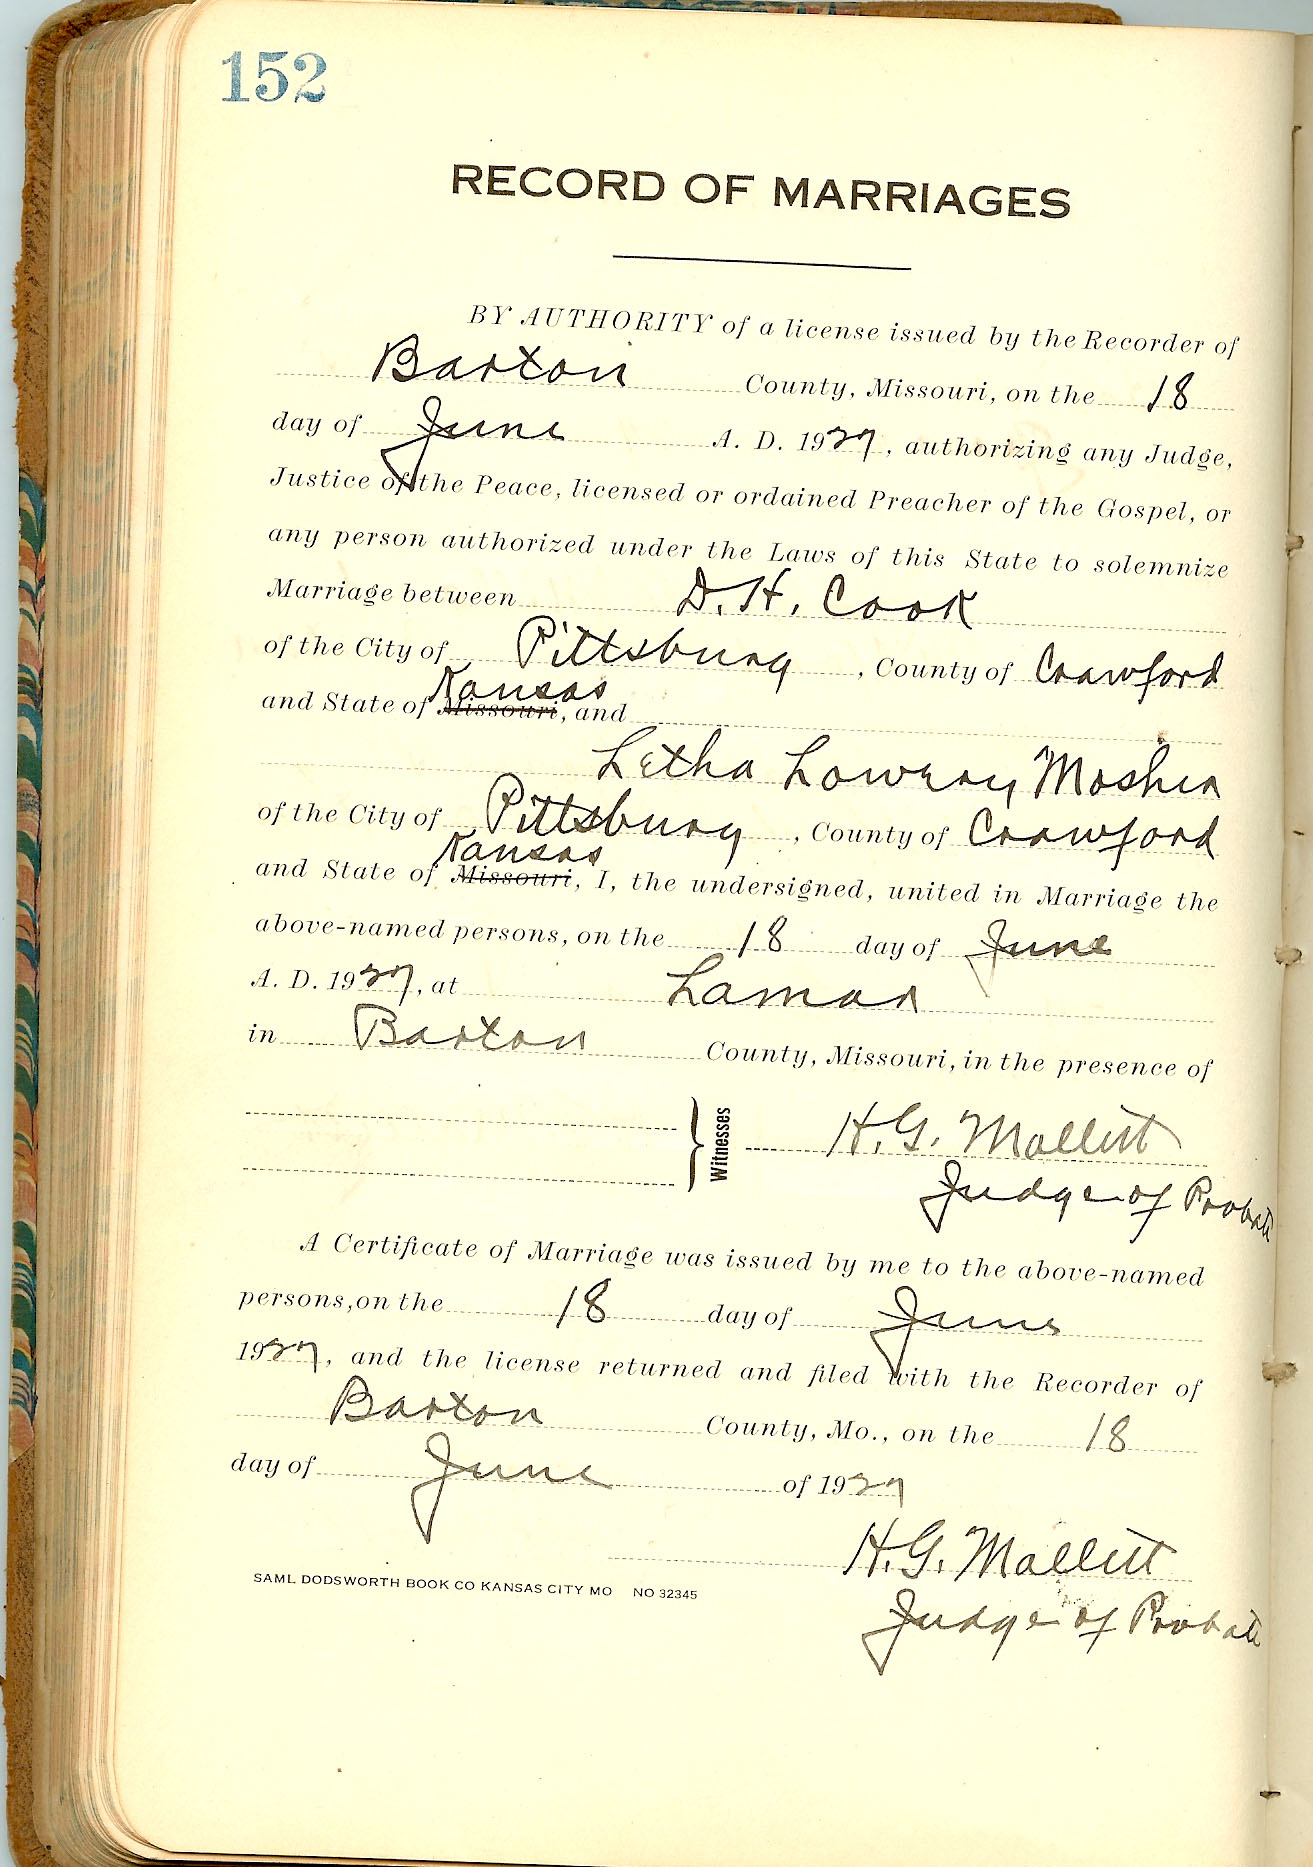 152
RECORD OF MARRIAGES
BY AUTHORITY of a license issued by the Recorder of
Barton County, Missouri, on the 18
day of June A. D. 1927, authorizing any Judge,
Justice of the Peace, licensed or ordained Preacher of the Gospel, or
any person authorized under the Laws of this State to solemnize
Marriage between D. H. Cook
of the City of Pittsburg, County of Crawford
and State of Kansas Missouri, and
Letha Lowery Mosher
of the City of Pittsburg, County of Crawford
and State of Kansas Missouri, I, the undersigned, united in Marriage the
above-named persons, on the 18 day of June
A. D. 1927, at Lamar
in Barton County, Missouri, in the presence of
Witnesses H. G. Mallett
Judge of Probate
A Certificate of Marriage was issued by me to the above-named
persons, on the 18 day of June
1927, and the license returned and filed with the Recorder of
Barton County, Mo., on the 18
day of June of 1927
H. G. Mallett
SAML DODSWORTH BOOK CO KANSAS CITY MO NO 32345
Judge of Probate